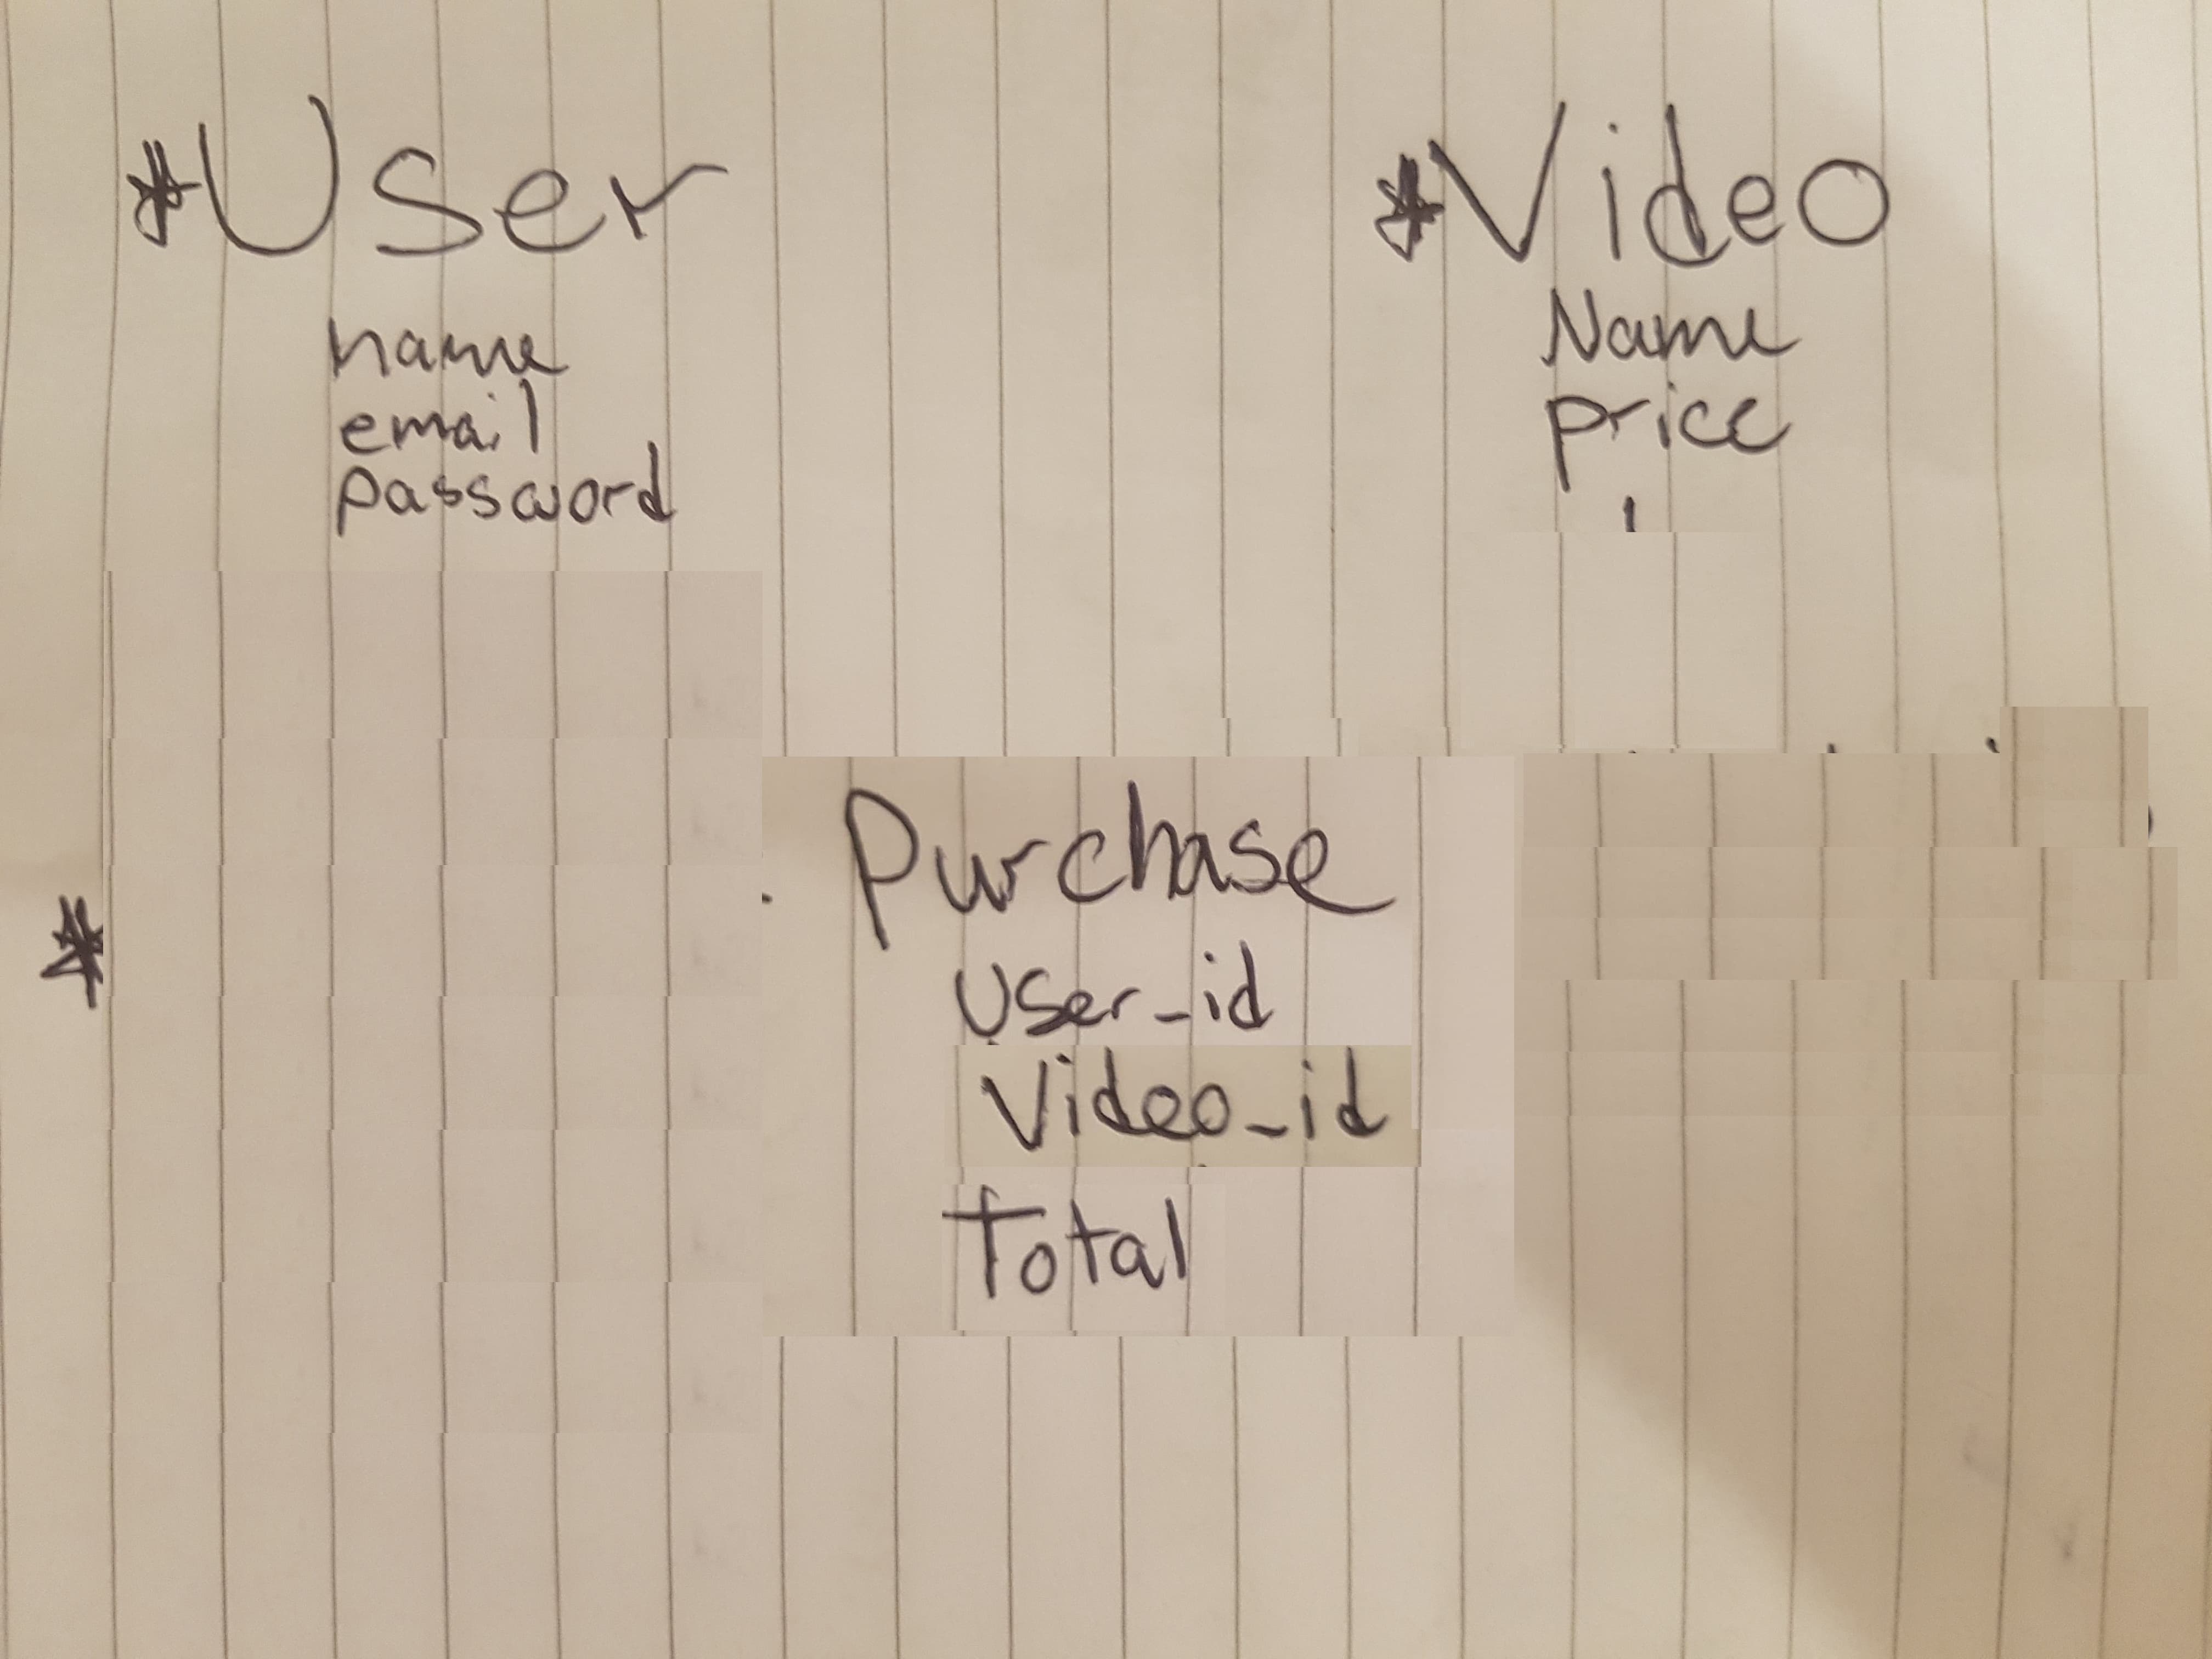 *User
name
email
password
*Video
Name
price
*
Purchase
User_id
Video_id
Total